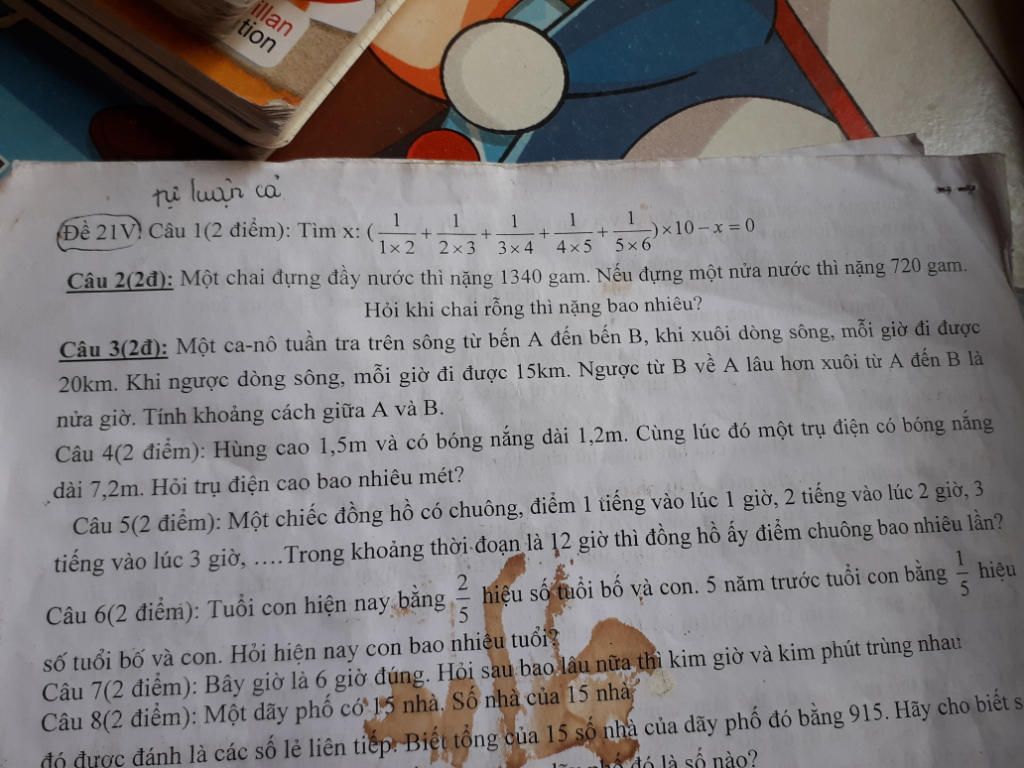 illan
tion
tự luận cả
Đề 21V: Câu 1(2 điểm): Tìm x: ( 1/(1×2) + 1/(2×3) + 1/(3×4) + 1/(4×5) + 1/(5×6) )×10 − x = 0
Câu 2(2đ): Một chai đựng đầy nước thì nặng 1340 gam. Nếu đựng một nửa nước thì nặng 720 gam.
Hỏi khi chai rỗng thì nặng bao nhiêu?
Câu 3(2đ): Một ca-nô tuần tra trên sông từ bến A đến bến B, khi xuôi dòng sông, mỗi giờ đi được
20km. Khi ngược dòng sông, mỗi giờ đi được 15km. Ngược từ B về A lâu hơn xuôi từ A đến B là
nửa giờ. Tính khoảng cách giữa A và B.
Câu 4(2 điểm): Hùng cao 1,5m và có bóng nắng dài 1,2m. Cùng lúc đó một trụ điện có bóng nắng
dài 7,2m. Hỏi trụ điện cao bao nhiêu mét?
Câu 5(2 điểm): Một chiếc đồng hồ có chuông, điểm 1 tiếng vào lúc 1 giờ, 2 tiếng vào lúc 2 giờ, 3
tiếng vào lúc 3 giờ, ….Trong khoảng thời đoạn là 12 giờ thì đồng hồ ấy điểm chuông bao nhiêu lần?
Câu 6(2 điểm): Tuổi con hiện nay bằng 2/5 hiệu số tuổi bố và con. 5 năm trước tuổi con bằng 1/5 hiệu
số tuổi bố và con. Hỏi hiện nay con bao nhiêu tuổi?
Câu 7(2 điểm): Bây giờ là 6 giờ đúng. Hỏi sau bao lâu nữa thì kim giờ và kim phút trùng nhau
Câu 8(2 điểm): Một dãy phố có 15 nhà. Số nhà của 15 nhà
đó được đánh là các số lẻ liên tiếp. Biết tổng của 15 số nhà của dãy phố đó bằng 915. Hãy cho biết s
đó là số nào?